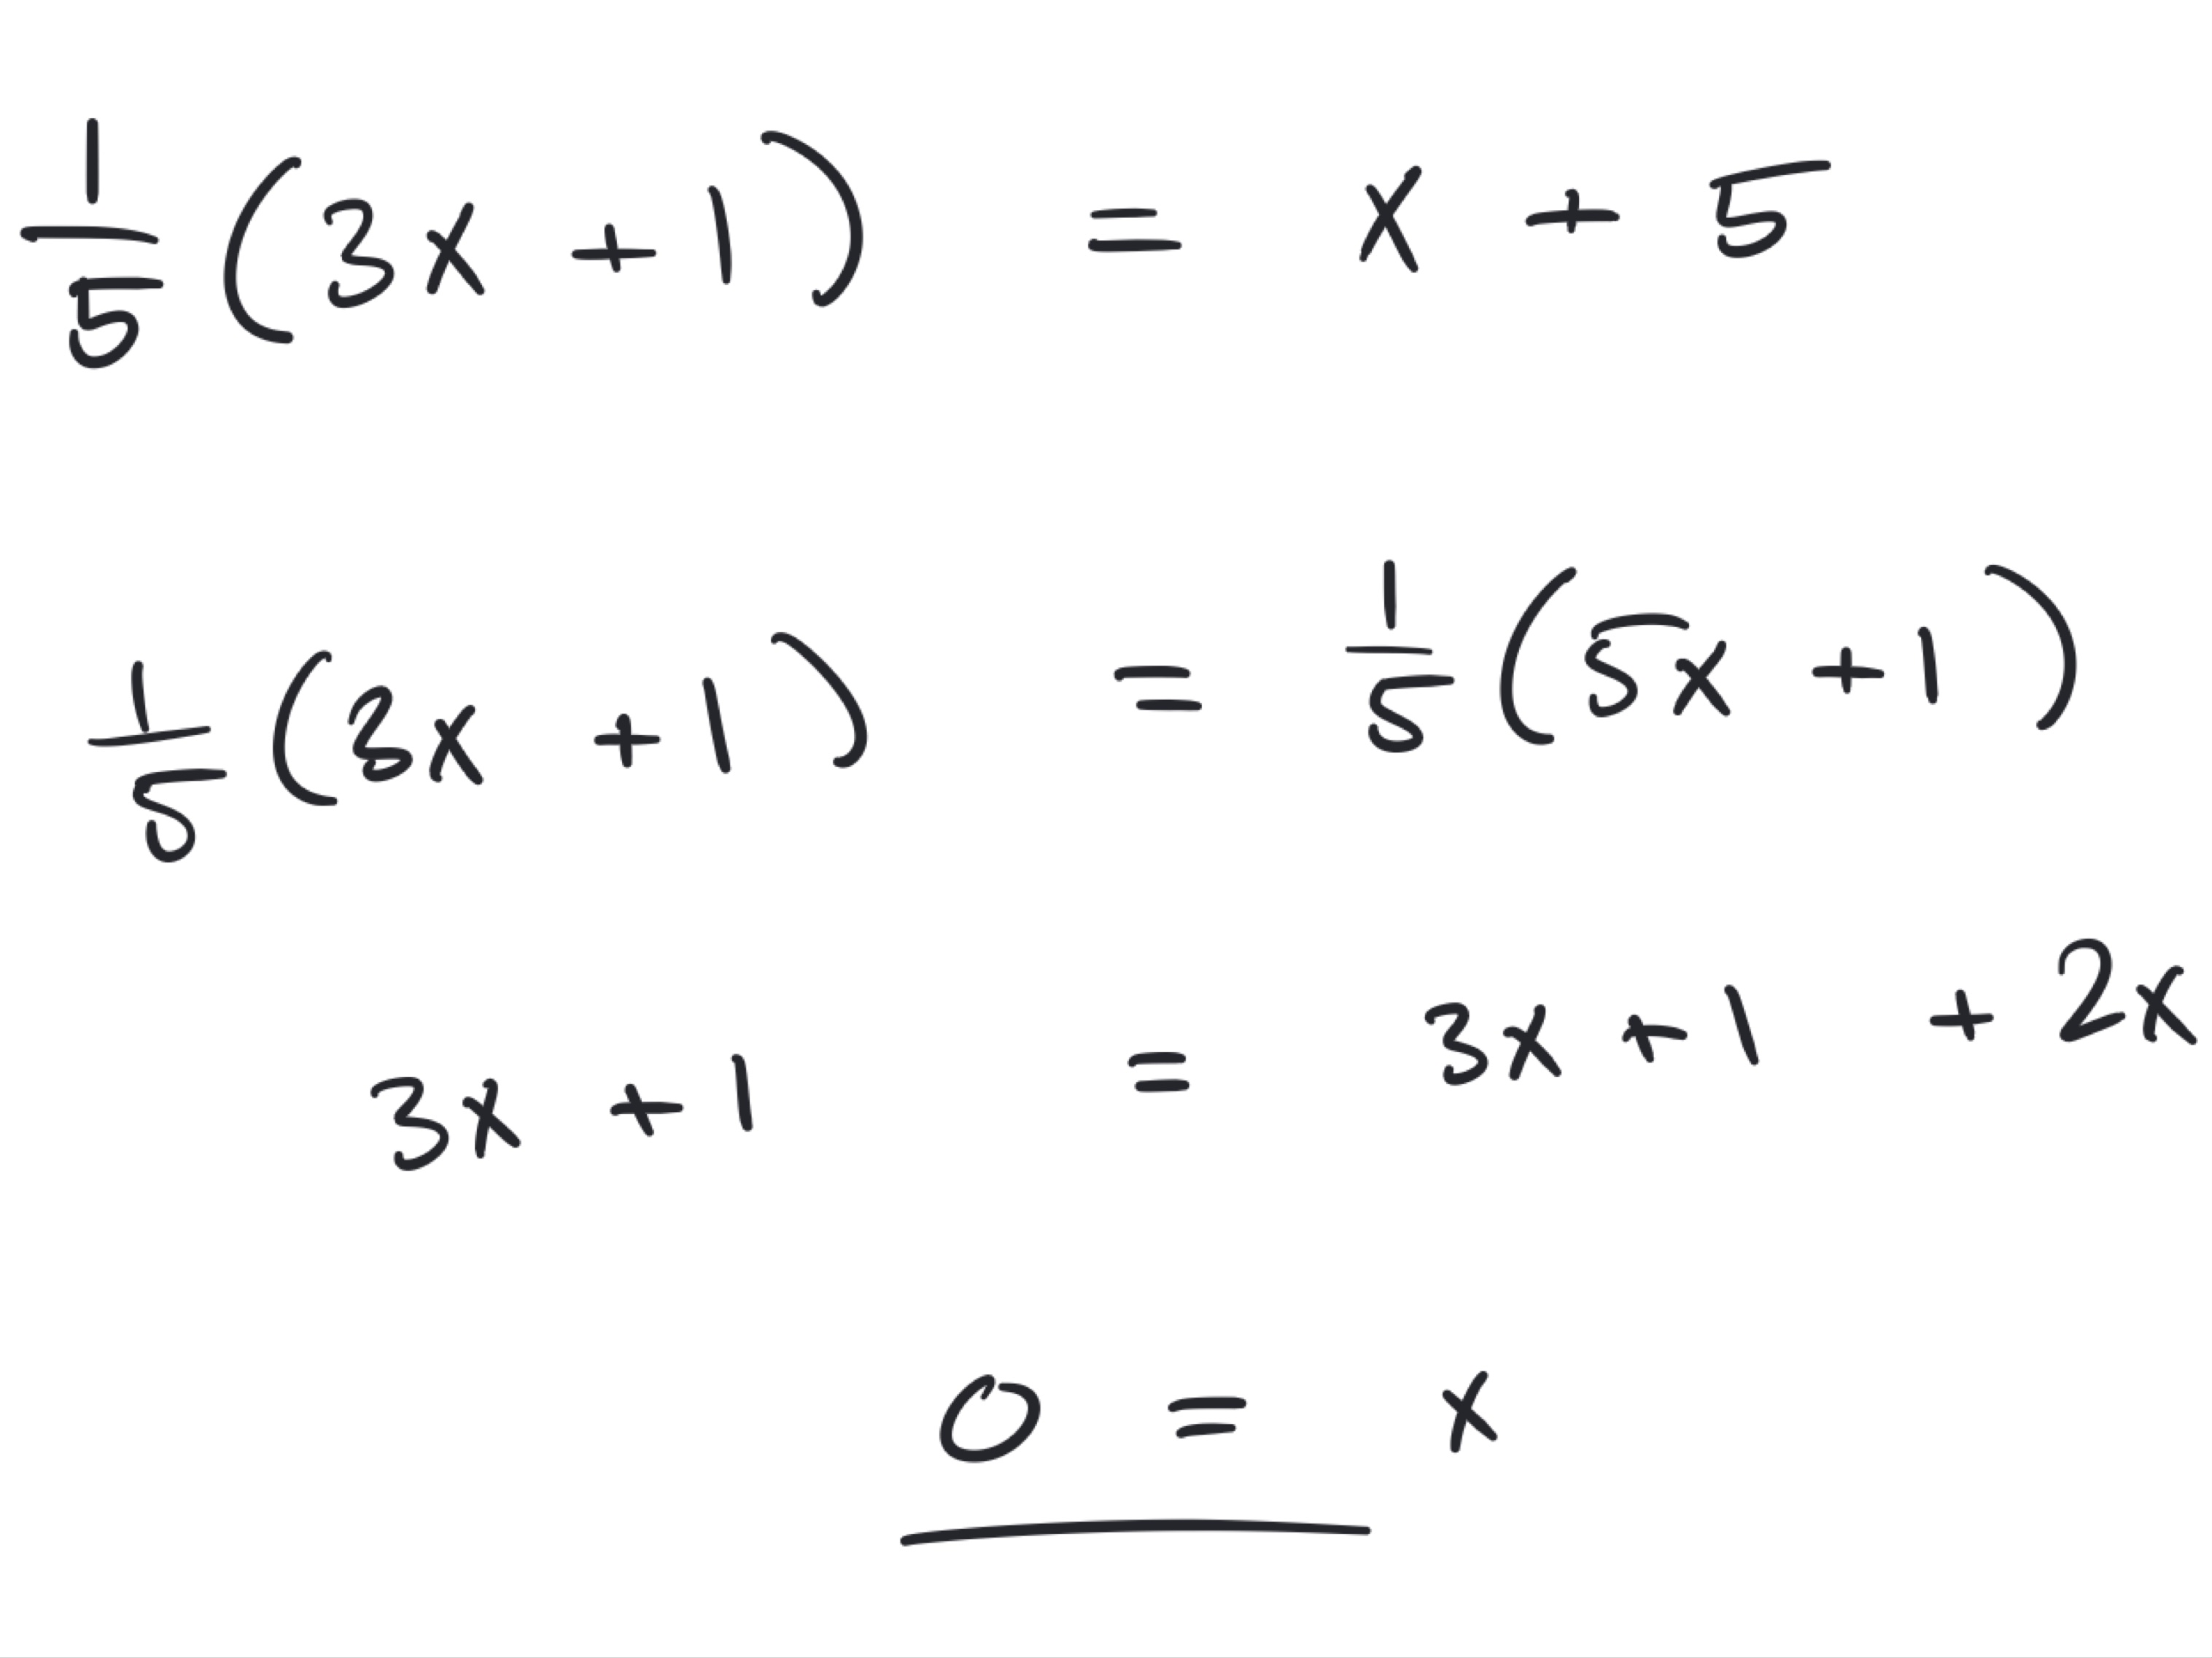 1/5 (3x + 1) = x + 5
1/5 (3x + 1) = 1/5 (5x + 1)
3x + 1 = 3x + 1 + 2x
0 = x